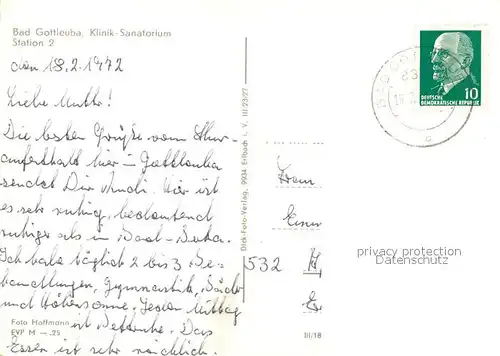 Bad Gottleuba, Klinik-Sanatorium
Station 2
den 18.2.1972
Liebe Mutti!
Die besten Grüße vom Kur-
aufenthalt hier in Gottleuba
sendet Dir Andi. Hier ist
es sehr ruhig, bedeutend
ruhiger als in
Ich habe täglich 2 bis 3 Be-
handlungen, Gymnastik, Bäder
und Höhensonne. Jeden Mittag
ist Bettruhe. Das
Essen ist sehr reichlich.
Foto Hoffmann
EVP M —.25
Dick-Foto-Verlag, 9934 Erlbach i. V. III/23/27
III/18
DEUTSCHE
DEMOKRATISCHE REPUBLIK
10
Frau
532
privacy protection
Datenschutz